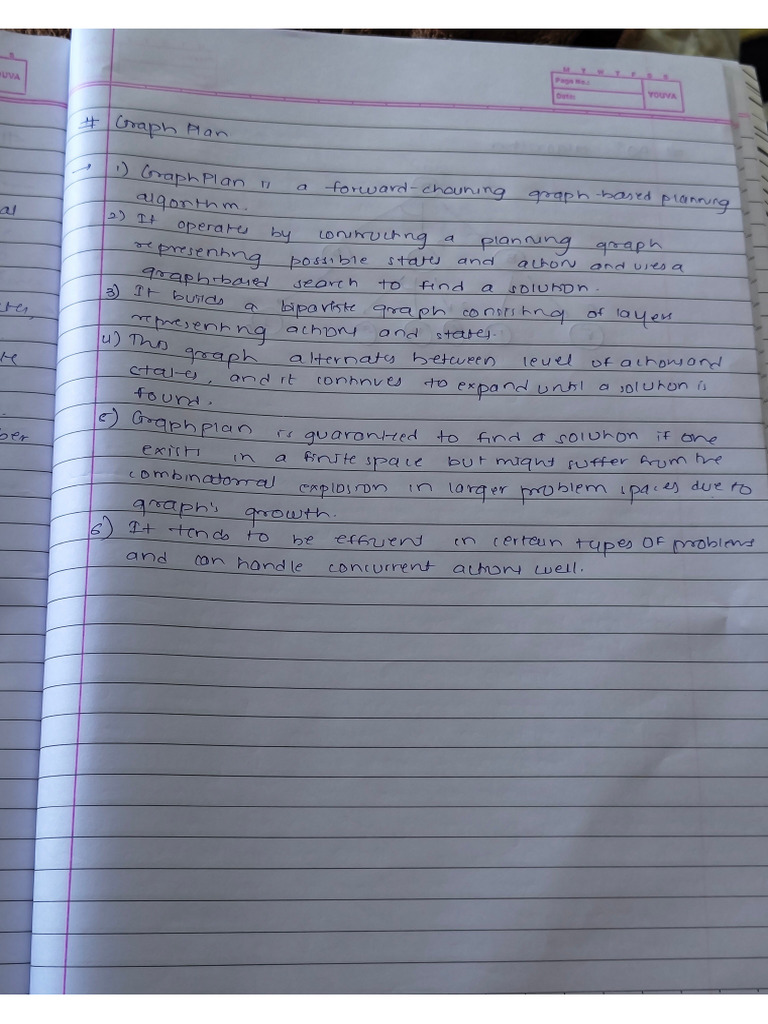 OUVA
M T W T F S S
Page No.:
Date:
YOUVA
# Graph Plan
→ 1) GraphPlan is a forward-chaining graph-based planning
algorithm.
2) It operates by constructing a planning graph
representing possible states and action and uses a
graph-based search to find a solution.
3) It builds a bipartite graph consisting of layers
representing actions and states.
4) This graph alternats between level of actions and
states, and it continues to expand until a solution is
found.
5) Graphplan is guaranteed to find a solution if one
exists in a finite space but might suffer from the
combinatorial explosion in larger problem spaces due to
graph's growth.
6) It tends to be efficient in certain types of problems
and can handle concurrent actions well.
al
te
ber